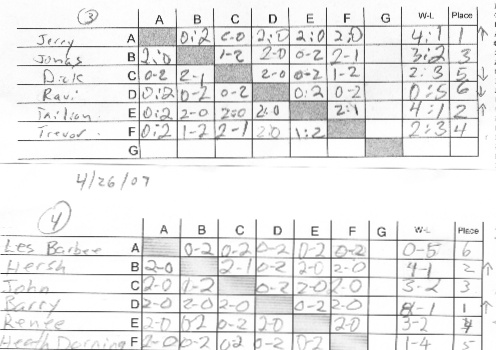 3 A B C D E F G W-L Place
Jerry A 0:2 2-0 2:0 2:0 2:0 4:1 1 ↑
Jonas B 2:0 1-2 2-0 0-2 2-1 3:2 3
Dick C 0-2 2-1 2-0 0-2 1-2 2:3 5 ↓
Ravi D 0:2 0-2 0-2 0:2 0-2 0:5 6 ↓
E 0:2 2-0 2:0 2:0 2:1 4:1 2 ↑
Trevor F 0:2 1-2 2-1 2:0 1:2 2:3 4
G
4/26/07
4 A B C D E F G W-L Place
Les Barbee A 0-2 0-2 0-2 0-2 0-2 0-5 6
Hersh B 2-0 2-1 0-2 2-0 2-0 4-1 2 ↑
John C 2-0 1-2 0-2 2-0 2-0 3-2 3
Barry D 2-0 2-0 2-0 0-2 2-0 -1 1 ↑
Renee E 2-0 0-2 0-2 2-0 2-0 3-2
Heath Dorning F 2-0 0-2 0-2 0-2 0-2 1-4 5